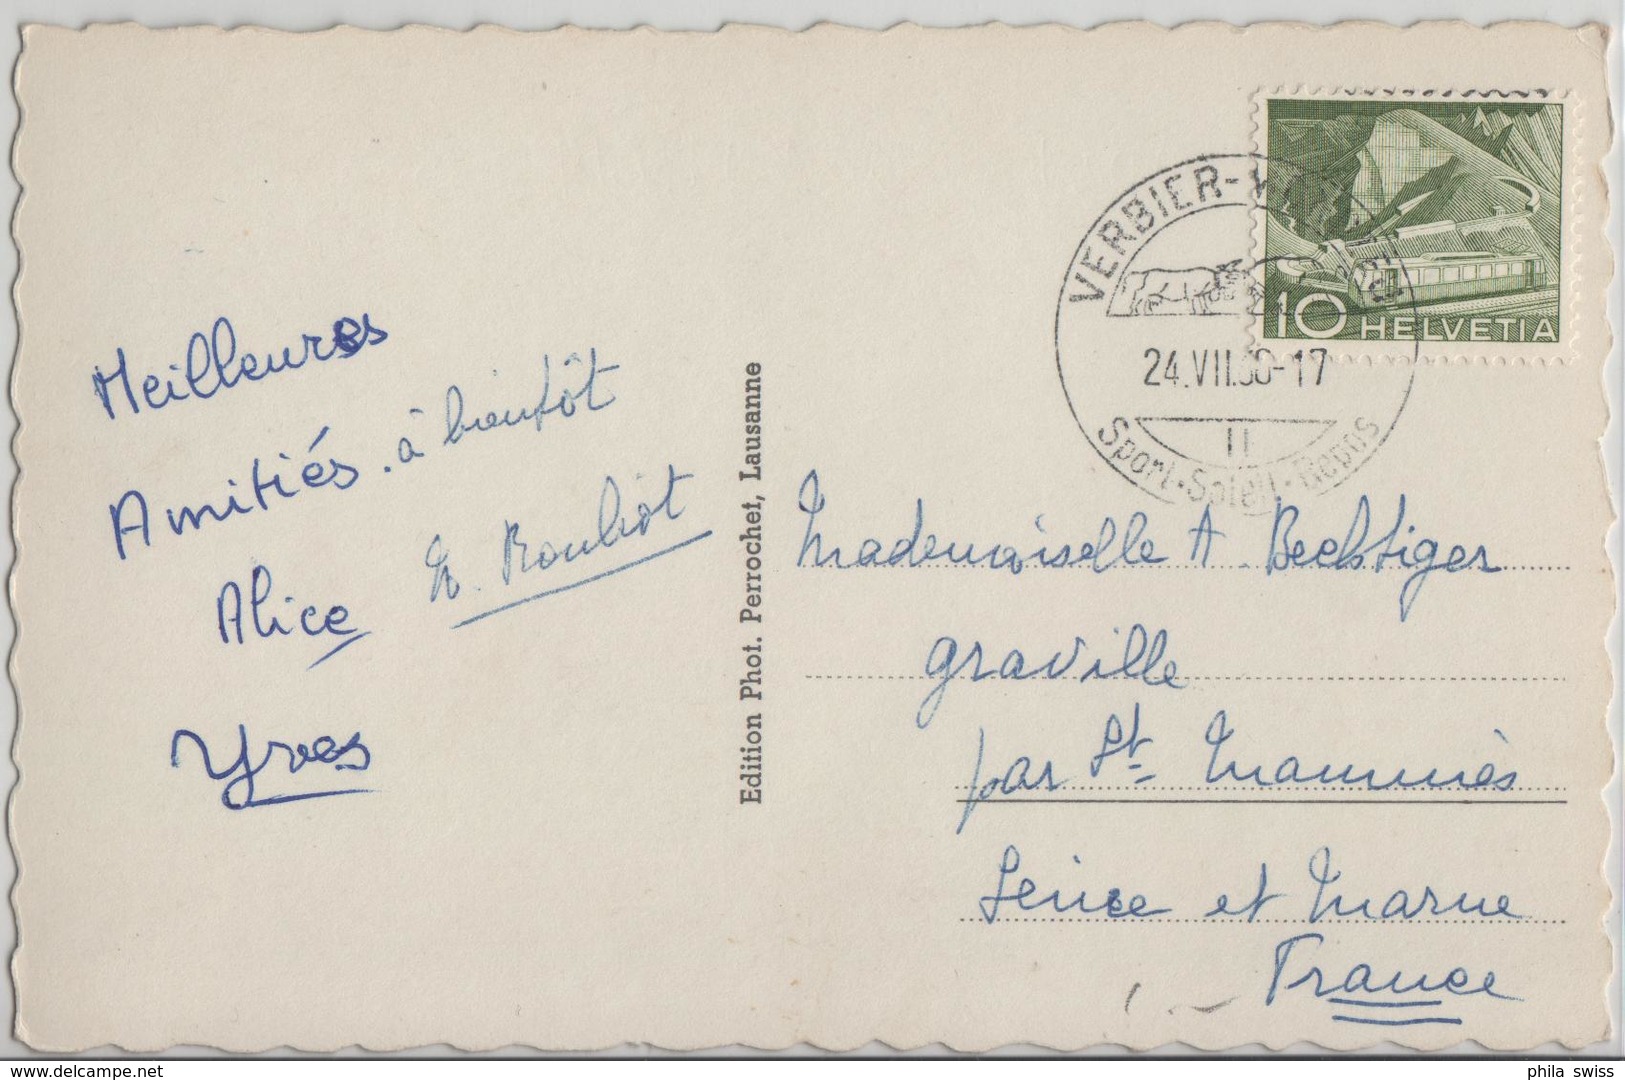 Meilleures
Amitiés. à bientôt
Alice
Yves
Edition Phot. Perrochet, Lausanne
10 HELVETIA
VERBIER-
24.VII. -17
Sport-Soleil-Repos
Mademoiselle A. Bechtiger
Graville
par St. Mammès
Seine et Marne
France
phila swiss
delcampe.net